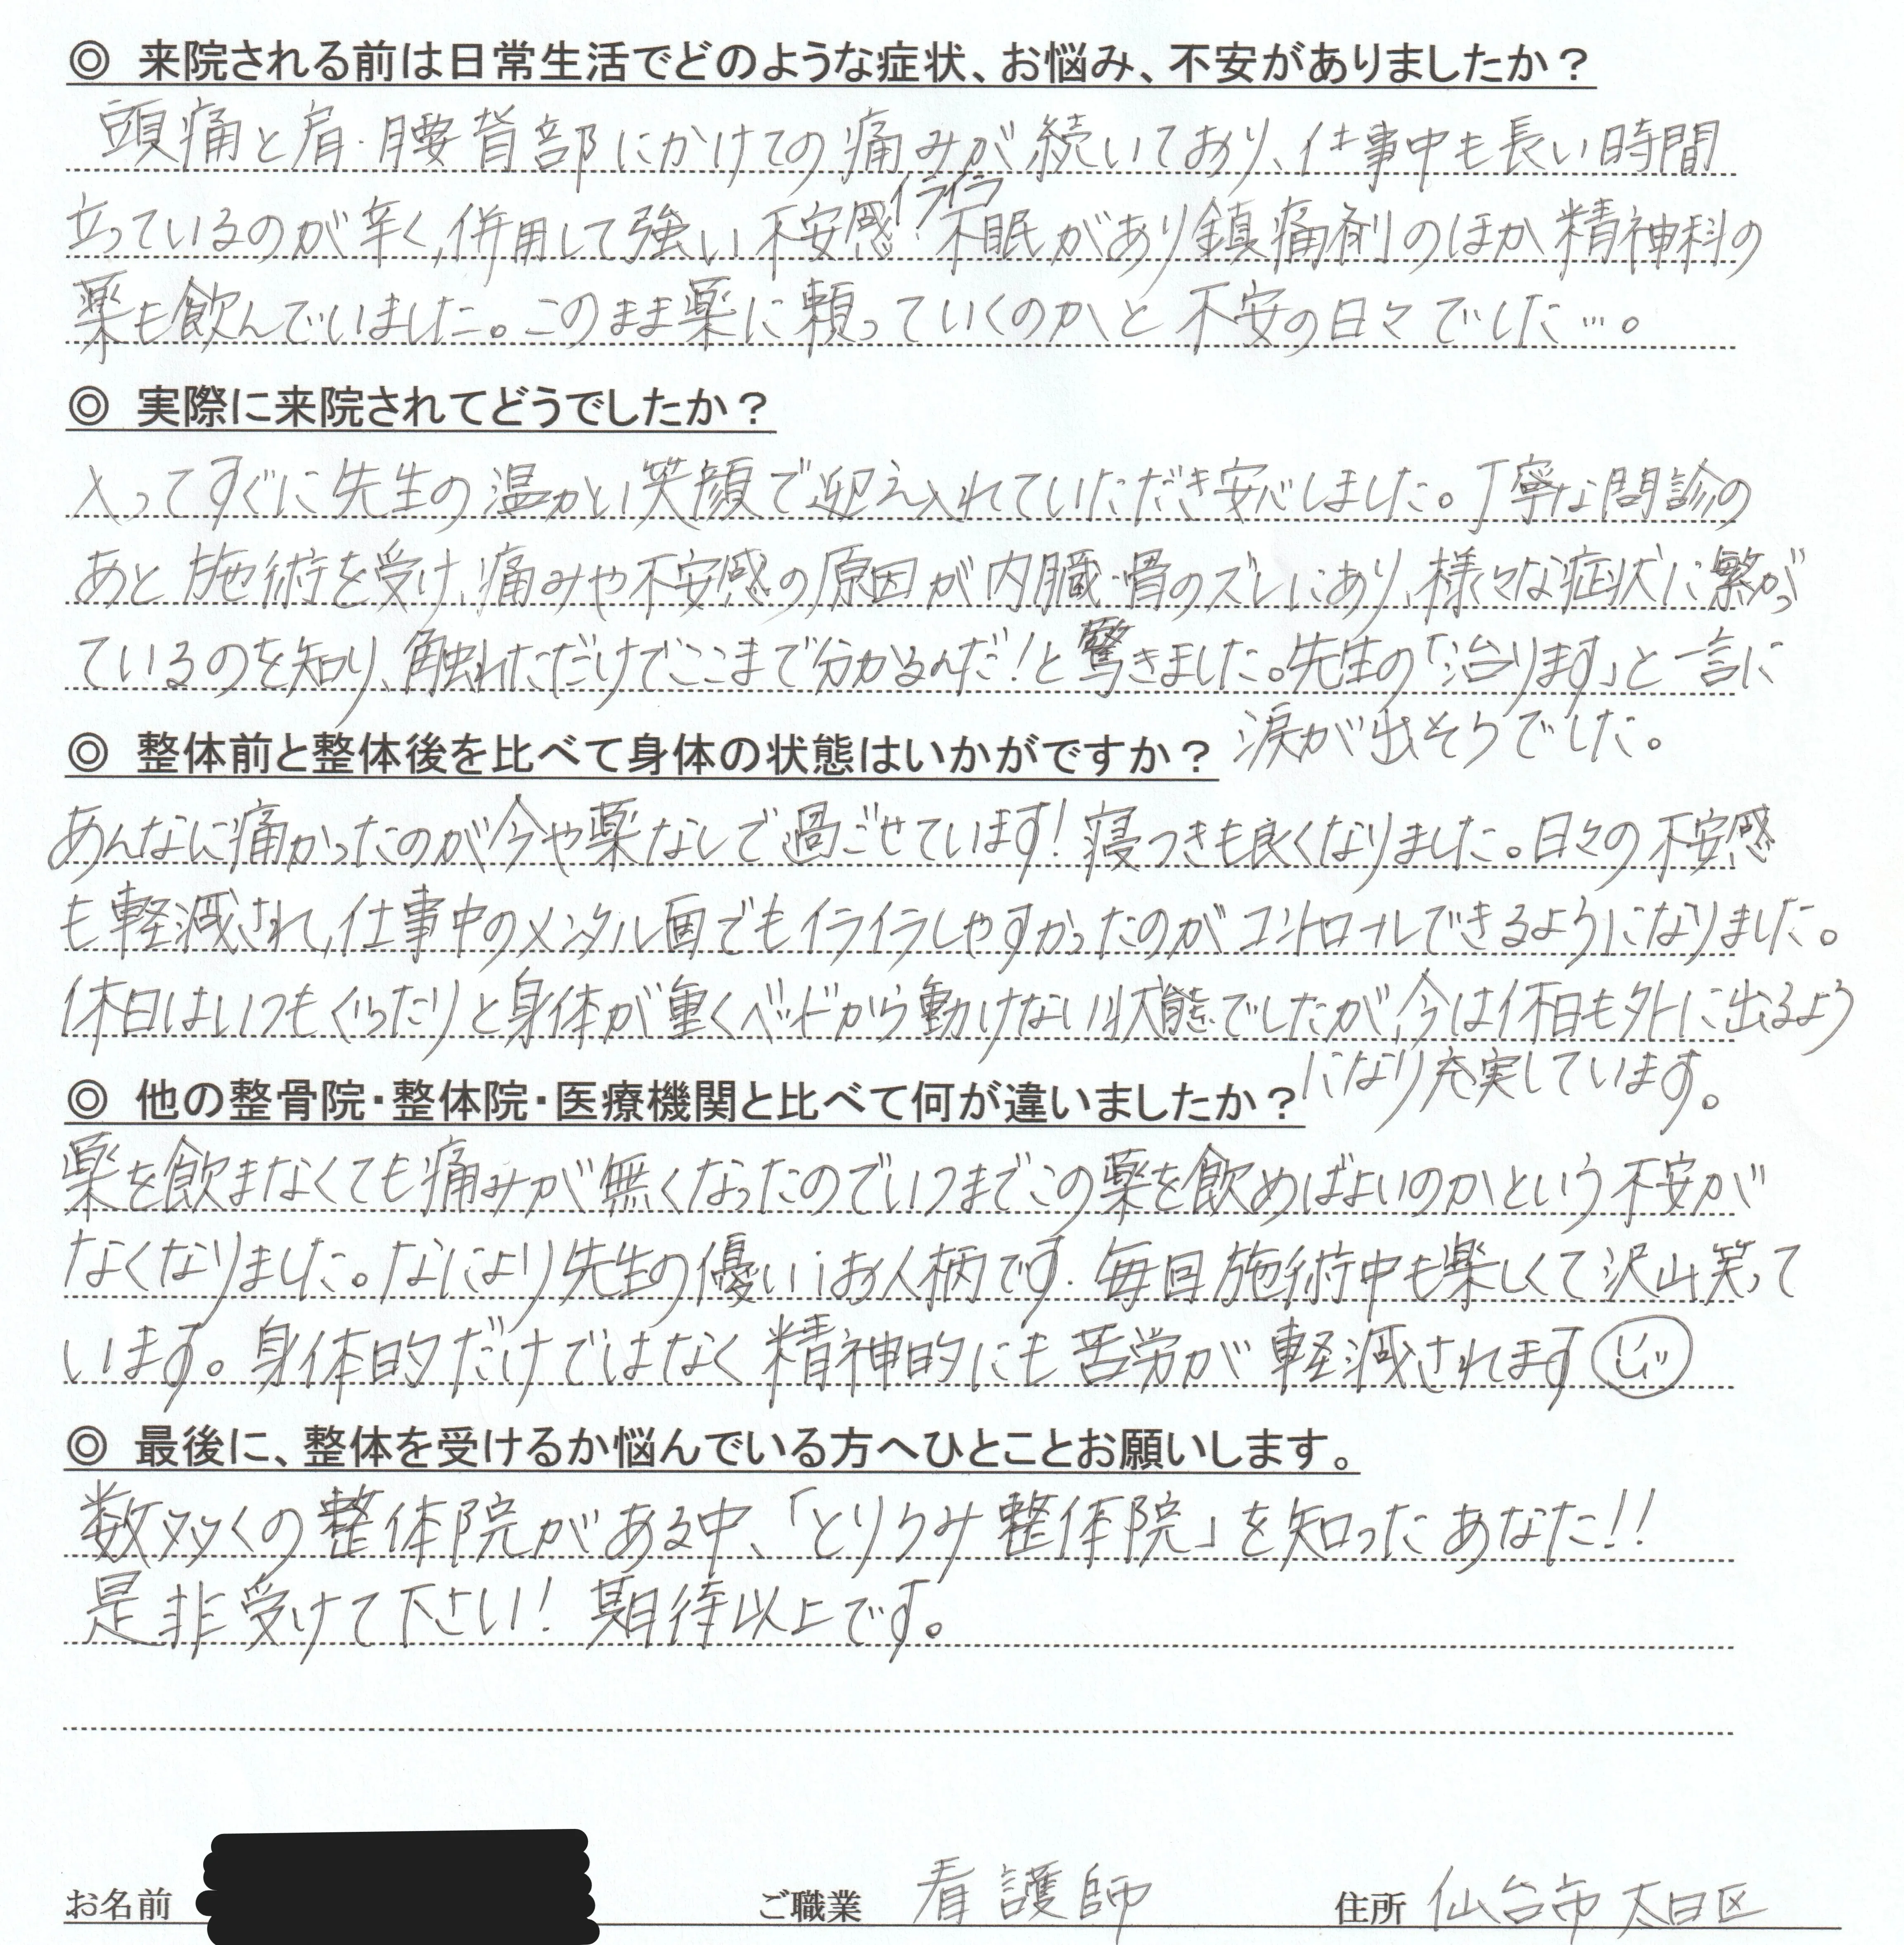 ◎ 来院される前は日常生活でどのような症状、お悩み、不安がありましたか？
頭痛と肩・腰背部にかけての痛みが続いており、仕事中も長い時間
立っているのが辛く、併用して強い不安感・イライラ・不眠があり鎮痛剤のほか精神科の
薬も飲んでいました。このまま薬に頼っていくのかと不安の日々でした…。
◎ 実際に来院されてどうでしたか？
入ってすぐに先生の温かい笑顔で迎え入れていただき安心しました。丁寧な問診の
あと施術を受け、痛みや不安感の原因が内臓・骨のズレにあり、様々な症状に繋がっ
ているのを知り、触れただけでここまで分かるんだ！と驚きました。先生の「治ります」と一言に
涙が出そうでした。
◎ 整体前と整体後を比べて身体の状態はいかがですか？
あんなに痛かったのが今や薬なしで過ごせています！寝つきも良くなりました。日々の不安感
も軽減され、仕事中のメンタル面でもイライラしやすかったのがコントロールできるようになりました。
休日はいつもぐったりと身体が重くベッドから動けない状態でしたが、今は休日も外に出るよう
になり充実しています。
◎ 他の整骨院・整体院・医療機関と比べて何が違いましたか？
薬を飲まなくても痛みが無くなったのでいつまでこの薬を飲めばよいのかという不安が
なくなりました。なにより先生の優しいお人柄です。毎回施術中も楽しくて沢山笑って
います。身体的だけではなく精神的にも苦労が軽減されます
◎ 最後に、整体を受けるか悩んでいる方へひとことお願いします。
数多くの整体院がある中、「とりうみ整体院」を知ったあなた！！
是非受けて下さい！期待以上です。
お名前 ご職業 看護師 住所 仙台市太白区